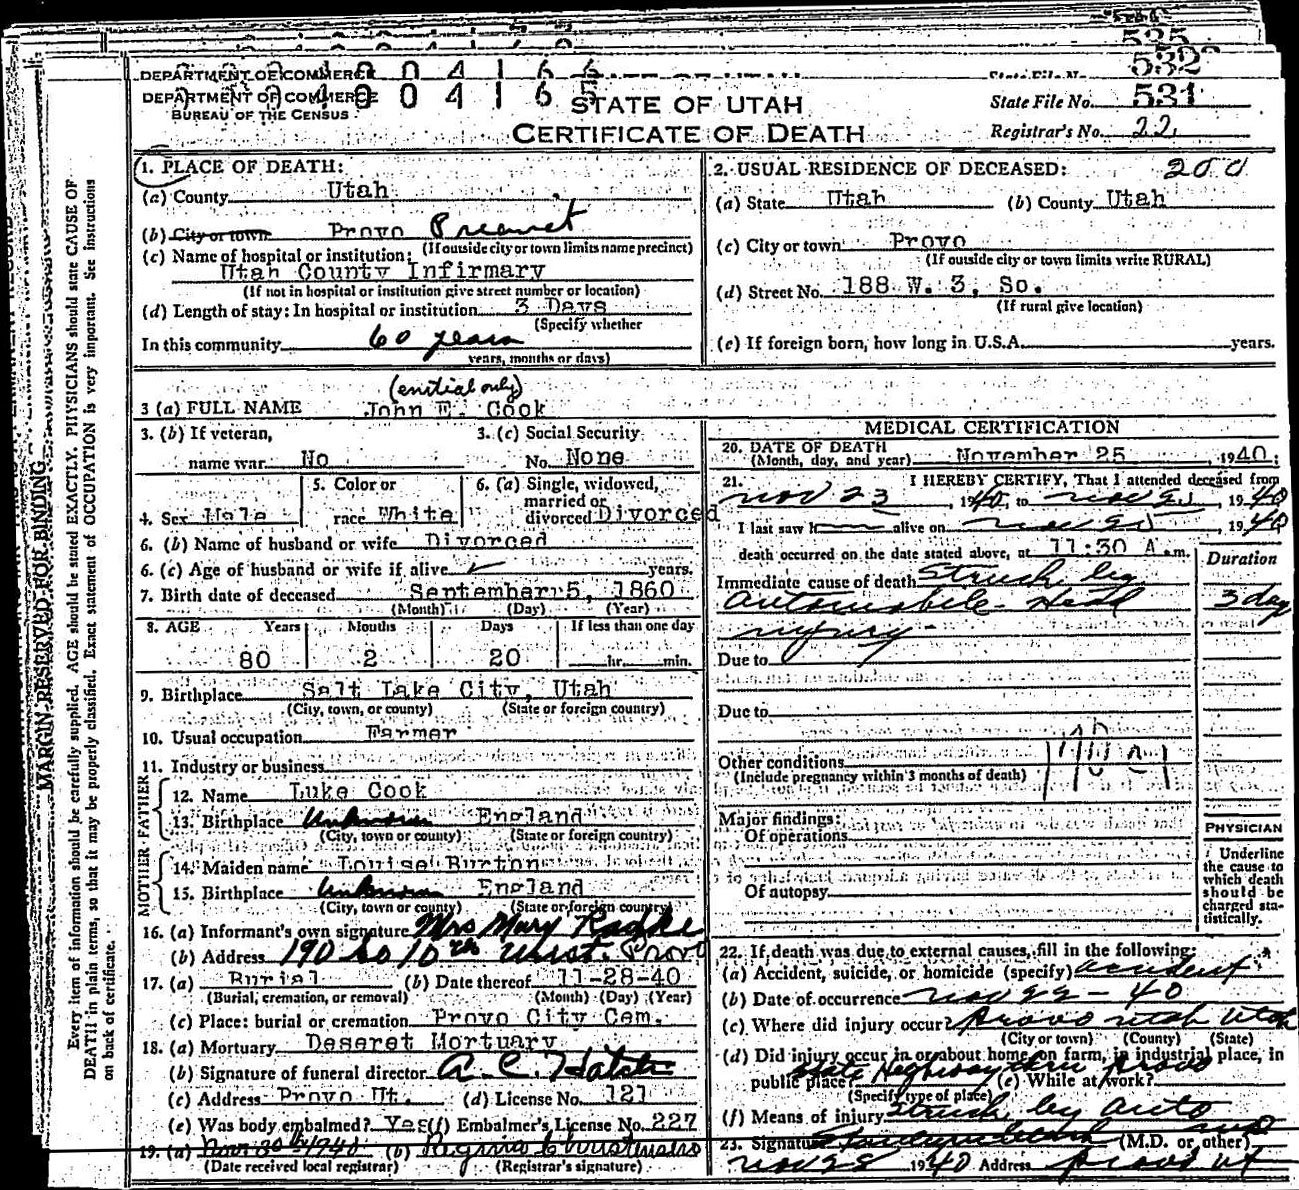 535
532
DEPARTMENT OF COMMERCE 004166
State File No. 531
DEPARTMENT OF COMMERCE 004165
BUREAU OF THE CENSUS
STATE OF UTAH
CERTIFICATE OF DEATH
Registrar's No. 22
MARGIN RESERVED FOR BINDING
Every item of information should be carefully supplied. AGE should be stated EXACTLY. PHYSICIANS should state CAUSE OF
DEATH in plain terms, so that it may be properly classified. Exact statement of OCCUPATION is very important. See instructions
on back of certificate.
1. PLACE OF DEATH:
(a) County Utah
(b) City or town Provo Precinct
(If outside city or town limits name precinct)
(c) Name of hospital or institution:
Utah County Infirmary
(If not in hospital or institution give street number or location)
(d) Length of stay: In hospital or institution 3 Days
(Specify whether
In this community 60 years
years, months or days)
2. USUAL RESIDENCE OF DECEASED: 200
(a) State Utah (b) County Utah
(c) City or town Provo
(If outside city or town limits write RURAL)
(d) Street No. 188 W. 3, So.
(If rural give location)
(e) If foreign born, how long in U.S.A. years.
(enitial only)
3 (a) FULL NAME John E. Cook
3. (b) If veteran, 3. (c) Social Security
name war No No. None
4. Sex Male
5. Color or
race White
6. (a) Single, widowed,
married or
divorced Divorced
6. (b) Name of husband or wife Divorced
6. (c) Age of husband or wife if alive years.
7. Birth date of deceased September 5, 1860
(Month) (Day) (Year)
8. AGE Years Months Days If less than one day
80 2 20 hr. min.
9. Birthplace Salt Lake City, Utah
(City, town, or county) (State or foreign country)
10. Usual occupation Farmer
11. Industry or business
FATHER
12. Name Luke Cook
13. Birthplace Unknown England
(City, town or county) (State or foreign country)
MOTHER
14. Maiden name Louise Burton
15. Birthplace Unknown England
(City, town or county) (State or foreign country)
16. (a) Informant's own signature Mrs Mary
(b) Address 190 So 10th West. Provo
17. (a) Burial (b) Date thereof 11-28-40
(Burial, cremation, or removal) (Month) (Day) (Year)
(c) Place: burial or cremation Provo City Cem.
18. (a) Mortuary Deseret Mortuary
(b) Signature of funeral director A. C. Hatch
(c) Address Provo Ut. (d) License No. 121
(e) Was body embalmed? Yes (f) Embalmer's License No. 227
19. (a) Nov 30th 1940 (b) Christensen
(Date received local registrar) (Registrar's signature)
MEDICAL CERTIFICATION
20. DATE OF DEATH
(Month, day, and year) November 25, 1940;
21. I HEREBY CERTIFY, That I attended deceased from
Nov 23, 1940, to Nov 25, 1940
I last saw h alive on Nov 25, 1940
death occurred on the date stated above, at 11:30 A.m.
Duration
Immediate cause of death Struck by
automobile - Head 3 day
injury -
Due to
Due to
Other conditions
(Include pregnancy within 3 months of death)
Major findings:
Of operations
Of autopsy
PHYSICIAN
Underline
the cause to
which death
should be
charged sta-
tistically.
22. If death was due to external causes, fill in the following:
(a) Accident, suicide, or homicide (specify) accident
(b) Date of occurrence Nov 22 - 40
(c) Where did injury occur? Provo Utah Utah
(City or town) (County) (State)
(d) Did injury occur in or about home, on farm, in industrial place, in
public place? State Highway thru Provo (e) While at work?
(Specify type of place)
(f) Means of injury Struck by Auto
23. Signature MD (M.D. or other)
Nov 28 1940 Address Provo Ut